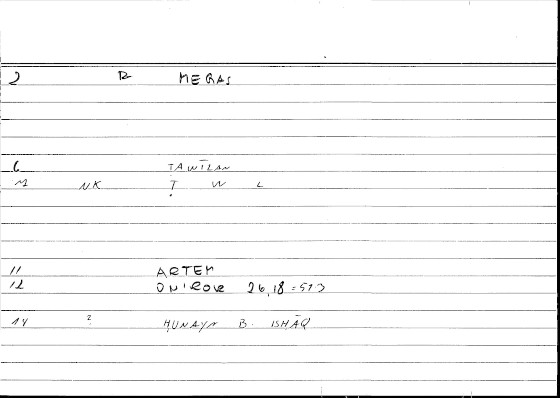 2 R MEGAS
6 TAWĪLAN
M NK Ṭ W L
11 ARTEM
12 ONIROK 26,18 = 51.3
14 ? ḤUNAYN B. ISHĀQ